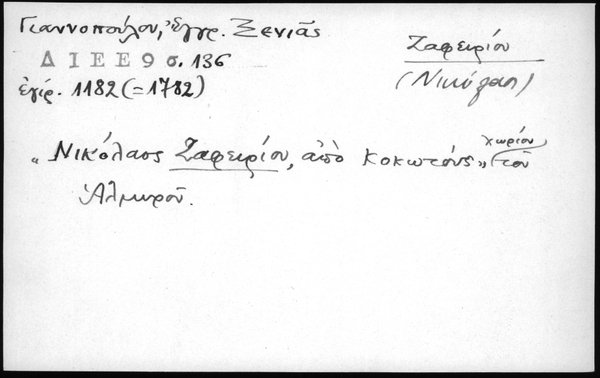 Γιαννοπούλου, Ἔγγρ. Ξενιᾶς
Ζαφειρίου
Δ Ι Ε Ε 9 σ. 136
(Νικόλαος)
ἐγγρ. 1182 (=1782)
„Νικόλαος Ζαφειρίου, ἀπὸ Κοκωτούς" (χωρίον τοῦ
Ἁλμυροῦ.